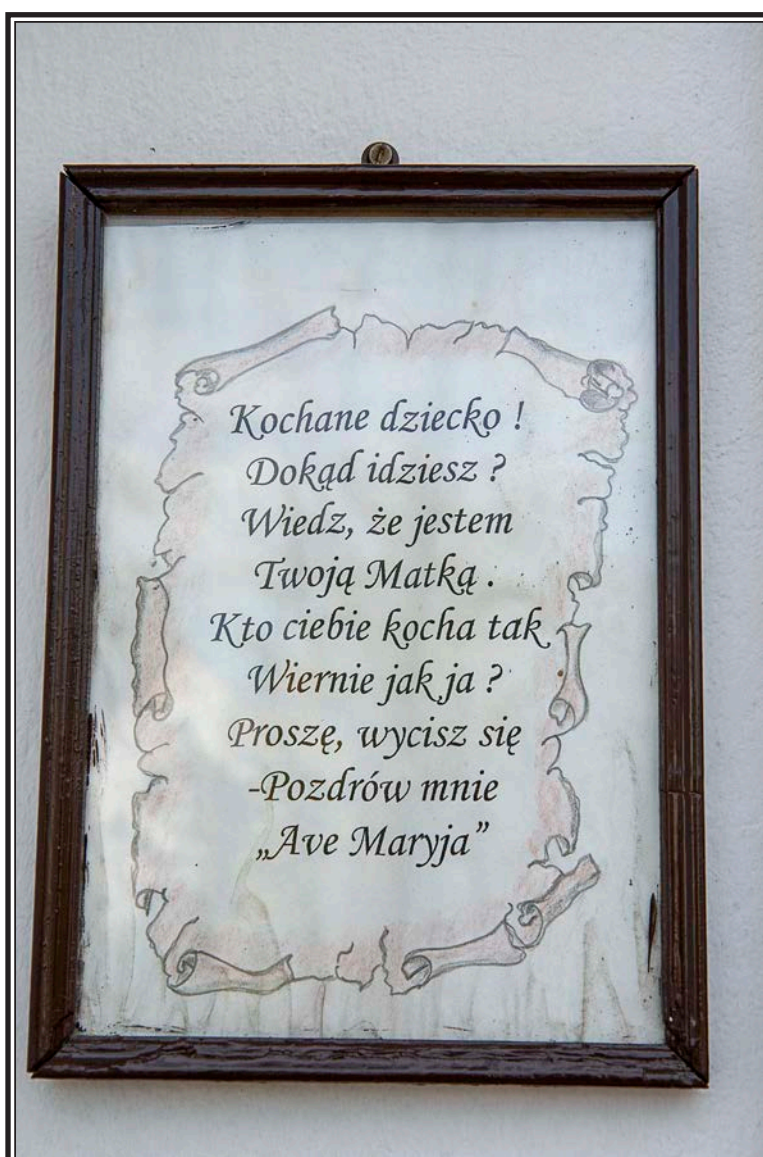 Kochane dziecko !
Dokąd idziesz ?
Wiedz, że jestem
Twoją Matką .
Kto ciebie kocha tak
Wiernie jak ja ?
Proszę, wycisz się
-Pozdrów mnie
„Ave Maryja”